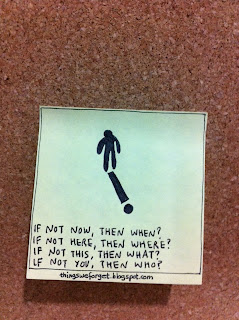 IF NOT NOW, THEN WHEN?
IF NOT HERE, THEN WHERE?
IF NOT THIS, THEN WHAT?
IF NOT YOU, THEN WHO?
thingsweforget.blogspot.com